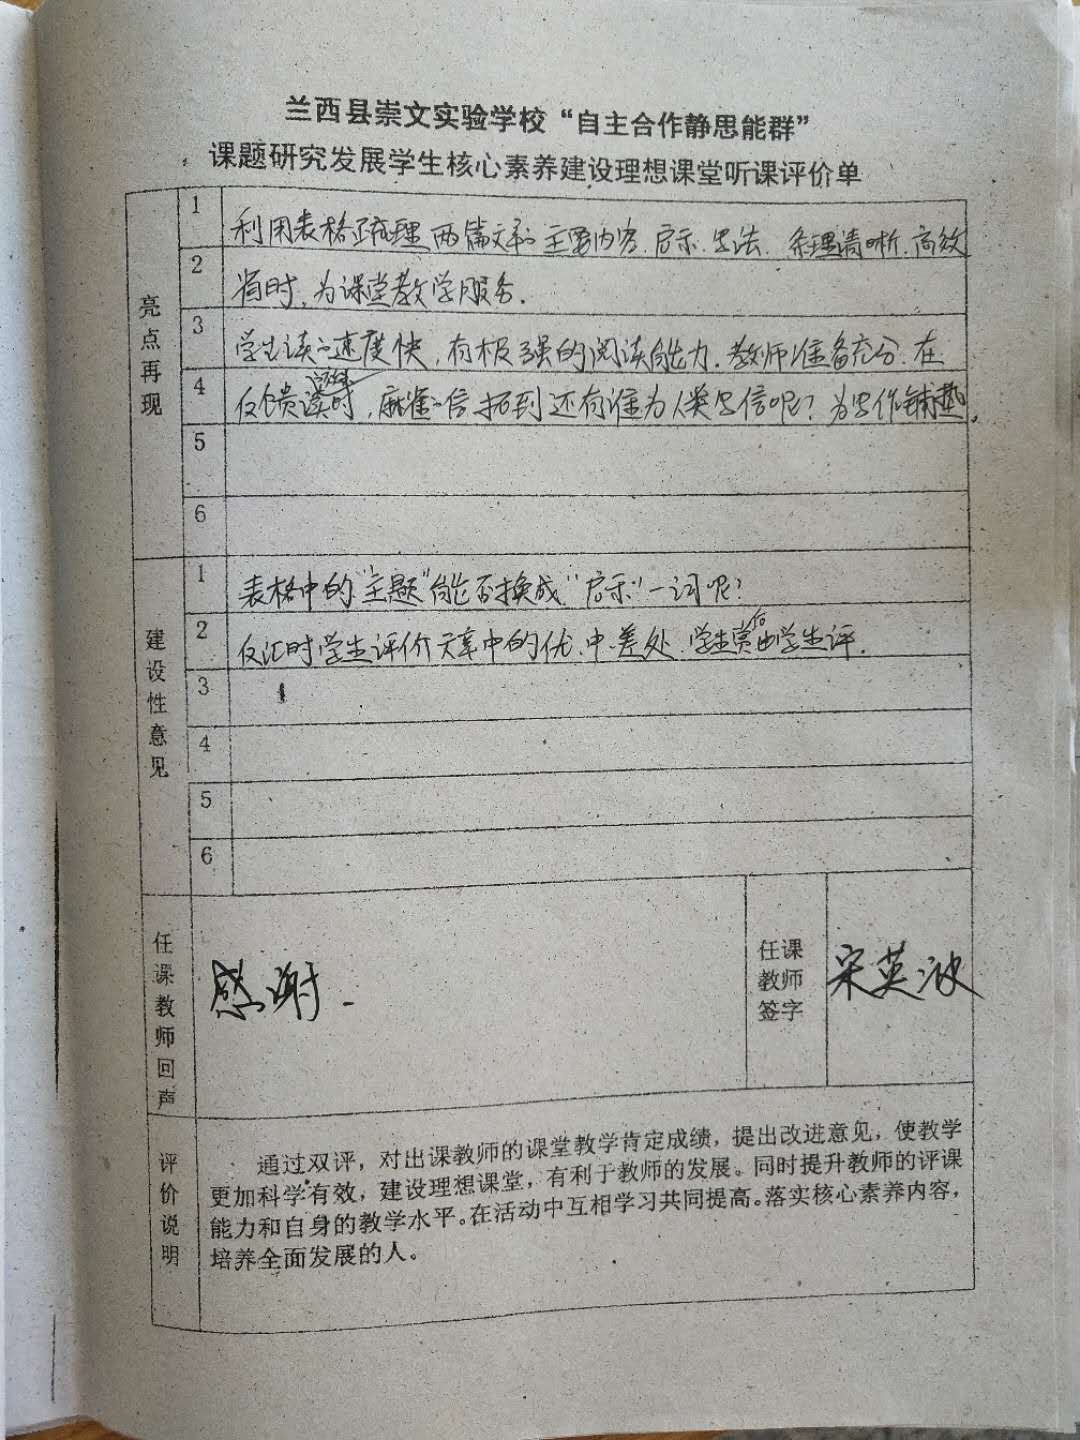 兰西县崇文实验学校“自主合作静思能群”
课题研究发展学生核心素养建设理想课堂听课评价单
亮点再现
1 利用表格梳理两篇文章的主要内容、启示、写法、条理清晰、高效
2 省时,为课堂教学服务.
3 学生读的速度快,有极强的阅读能力.教师准备充分.在
4 反馈读时,麻雀的信,拓到还有谁为人类写信呢?为写作铺垫.
5
6
建设性意见
1 表格中的“主题”能否换成“启示”一词呢?
2 反汇时学生评价文章中的优、中、差处.学生赏后由学生评.
3
4
5
6
任课教师回声
感谢.
任课
教师
签字
宋英波
评价说明
通过双评,对出课教师的课堂教学肯定成绩,提出改进意见,使教学
更加科学有效,建设理想课堂,有利于教师的发展。同时提升教师的评课
能力和自身的教学水平。在活动中互相学习共同提高。落实核心素养内容,
培养全面发展的人。